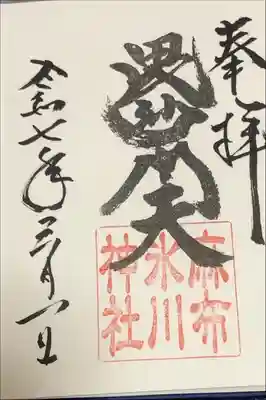 奉拝
毘沙門天
麻布
氷川
神社
令和七年三月一日